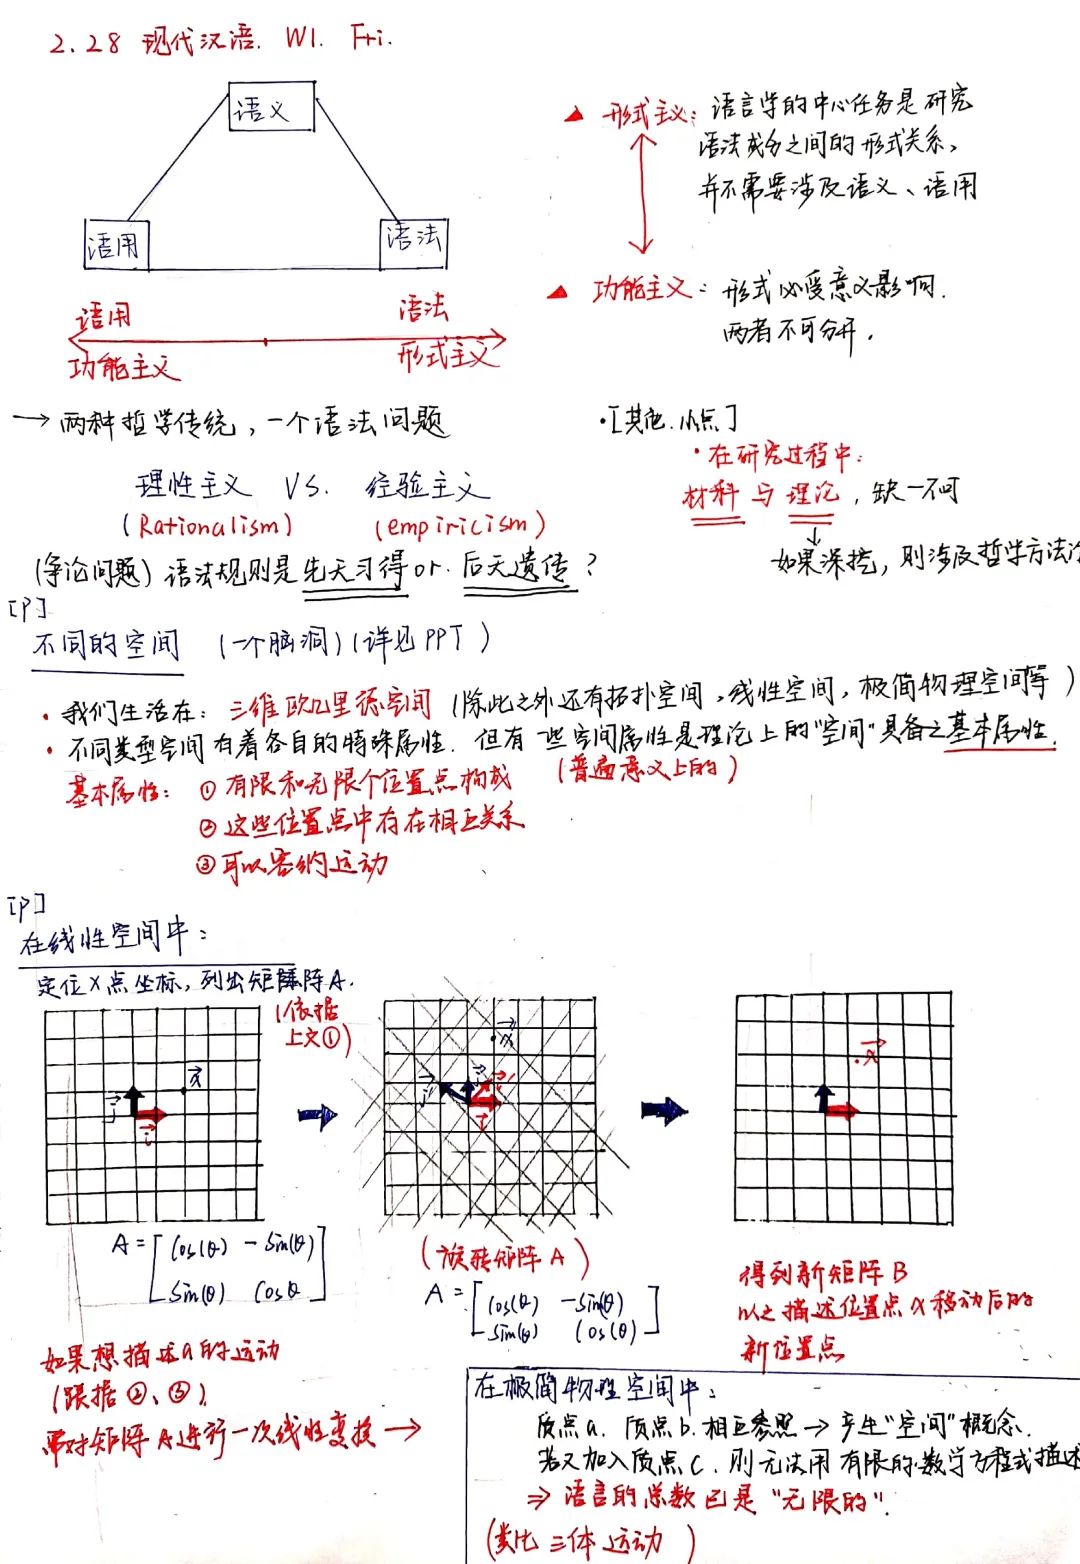 2.28 现代汉语. W1. Fri.
语义
语用
语法
语用
语法
功能主义
形式主义
▲ 形式主义：语言学的中心任务是研究
语法成分之间的形式关系，
并不需要涉及语义、语用
▲ 功能主义：形式必受意义影响.
两者不可分开.
→ 两种哲学传统，一个语法问题
理性主义 VS. 经验主义
(Rationalism) (empiricism)
(争论问题) 语法规则是先天习得 or. 后天遗传？
·[其他.小点]
·在研究过程中：
材料与理论，缺一不可
如果深挖，则涉及哲学方法论
[P]
不同的空间 (一个脑洞)(详见PPT)
· 我们生活在：三维欧几里德空间 (除此之外还有拓扑空间，线性空间，极简物理空间等)
· 不同类型空间有着各自的特殊属性. 但有一些空间属性是理论上的"空间"具备之基本属性.
(普遍意义上的)
基本属性：① 有限和无限个位置点构成
② 这些位置点中存在相互关系
③ 可以容纳运动
[P]
在线性空间中：
定位x点坐标，列出矩阵A.
(依据
上文①)
j i x
j' j i' i x
x
A=[cos(θ) -sin(θ)
sin(θ) cosθ]
(旋转矩阵A)
A=[cos(θ) -sin(θ)
sin(θ) cos(θ)]
得到新矩阵B
以之描述位置点x移动后的
新位置点
如果想描述a的运动
(跟据②、③)
需对矩阵A进行一次线性变换 →
在极简物理空间中：
质点a. 质点b.相互参照 → 产生"空间"概念.
若又加入质点C. 则无法用有限的数学方程式描述
⇒ 语言的总数已是"无限的".
(类比三体运动)